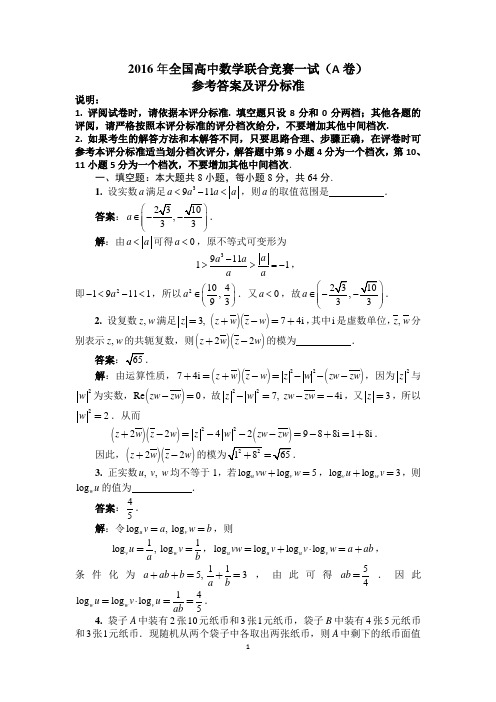 2016 年全国高中数学联合竞赛一试（A 卷）
参考答案及评分标准
说明：
1. 评阅试卷时，请依据本评分标准. 填空题只设 8 分和 0 分两档；其他各题的
评阅，请严格按照本评分标准的评分档次给分，不要增加其他中间档次.
2. 如果考生的解答方法和本解答不同，只要思路合理、步骤正确，在评卷时可
参考本评分标准适当划分档次评分，解答题中第 9 小题 4 分为一个档次，第 10、
11 小题 5 分为一个档次，不要增加其他中间档次.
一、填空题：本大题共 8 小题，每小题 8 分，共 64 分.
1. 设实数 a 满足 a < 9a³ − 11a < |a|，则 a 的取值范围是 ________ .
答案：a ∈ (−2√3/3, −√10/3).
解：由 a < |a| 可得 a < 0，原不等式可变形为
1 > (9a³ − 11a)/a > |a|/a = −1，
即 −1 < 9a² − 11 < 1，所以 a² ∈ (10/9, 4/3). 又 a < 0，故 a ∈ (−2√3/3, −√10/3).
2. 设复数 z, w 满足 |z| = 3, (z + w̄)(z̄ − w) = 7 + 4i，其中 i 是虚数单位，z̄, w̄ 分
别表示 z, w 的共轭复数，则 (z + 2w̄)(z̄ − 2w) 的模为 ________ .
答案：√65.
解：由运算性质，7 + 4i = (z + w̄)(z̄ − w) = |z|² − |w|² − (zw − z̄w̄)，因为 |z|² 与
|w|² 为实数，Re(zw − z̄w̄) = 0，故 |z|² − |w|² = 7, zw − z̄w̄ = −4i，又 |z| = 3，所以
|w|² = 2. 从而
(z + 2w̄)(z̄ − 2w) = |z|² − 4|w|² − 2(zw − z̄w̄) = 9 − 8 + 8i = 1 + 8i.
因此，(z + 2w̄)(z̄ − 2w) 的模为 √(1² + 8²) = √65.
3. 正实数 u, v, w 均不等于 1，若 logᵤ vw + logᵥ w = 5，logᵥ u + log_w v = 3，则
log_w u 的值为 ________ .
答案：4/5.
解：令 logᵤ v = a, logᵥ w = b，则
logᵥ u = 1/a, log_w v = 1/b，logᵤ vw = logᵤ v + logᵤ v · logᵥ w = a + ab，
条件化为 a + ab + b = 5, 1/a + 1/b = 3，由此可得 ab = 5/4. 因此
log_w u = log_w v · logᵥ u = 1/ab = 4/5.
4. 袋子 A 中装有 2 张 10 元纸币和 3 张 1 元纸币，袋子 B 中装有 4 张 5 元纸币
和 3 张 1 元纸币. 现随机从两个袋子中各取出两张纸币，则 A 中剩下的纸币面值
1